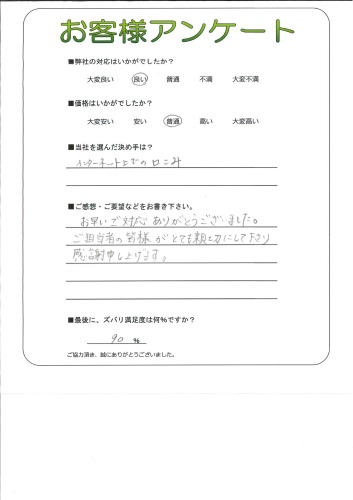 お客様アンケート
■弊社の対応はいかがでしたか?
大変良い 良い 普通 不満 大変不満
■価格はいかがでしたか?
大変安い 安い 普通 高い 大変高い
■当社を選んだ決め手は?
インターネット上での口こみ
■ご感想・ご要望などをお書き下さい。
お早いご対応ありがとうございました。
ご担当者の皆様がとても親切にして下さり
感謝申し上げます。
■最後に、ズバリ満足度は何%ですか?
90 %
ご協力頂き、誠にありがとうございました。